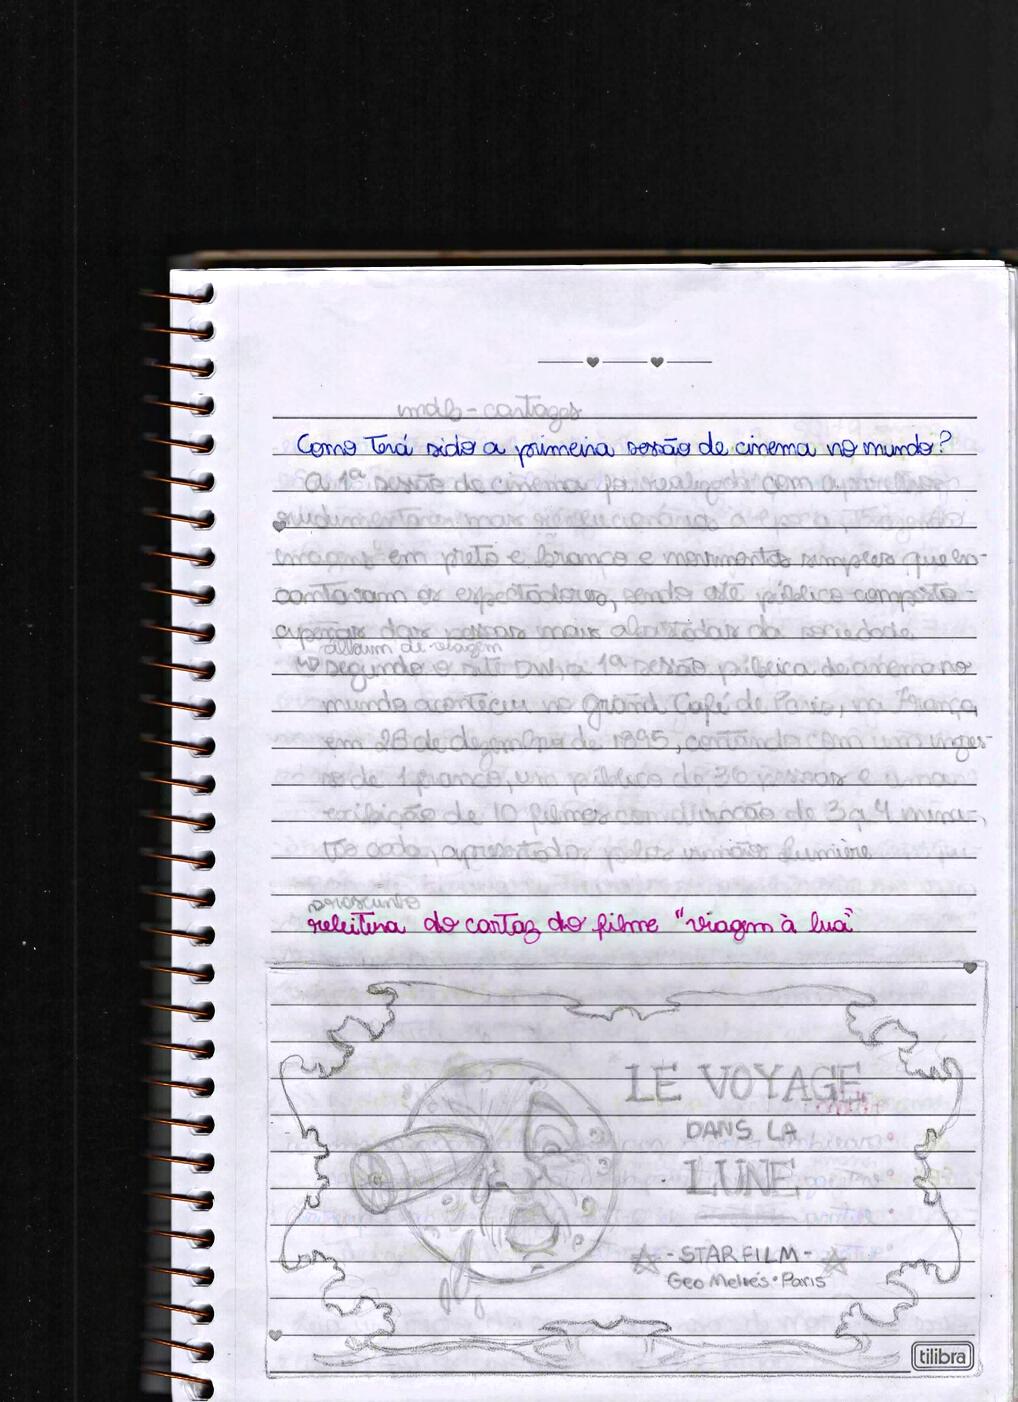 Como terá sido a primeira sessão de cinema no mundo?
A 1ª sessão de cinema foi realizada com
rudimentares mas
imagens em preto e branco e movimentos simples que en-
cantavam os espectadores, sendo até público composto
apenas das pessoas mais abastadas da sociedade.
álbum de viagem
segundo o site a 1ª sessão pública de cinema no
mundo aconteceu no Grand Café de Paris, na França,
em 28 de dezembro de 1895, contando com um ingres-
so de 1 franco, um público de 36 pessoas e uma
exibição de 10 filmes com duração de 3 a 4 minu-
tos cada, apresentados pelos irmãos Lumière
releitura do cartaz do filme "viagem à lua"
LE VOYAGE
DANS LA
LUNE
- STAR FILM -
Geo Meliés • Paris
tilibra